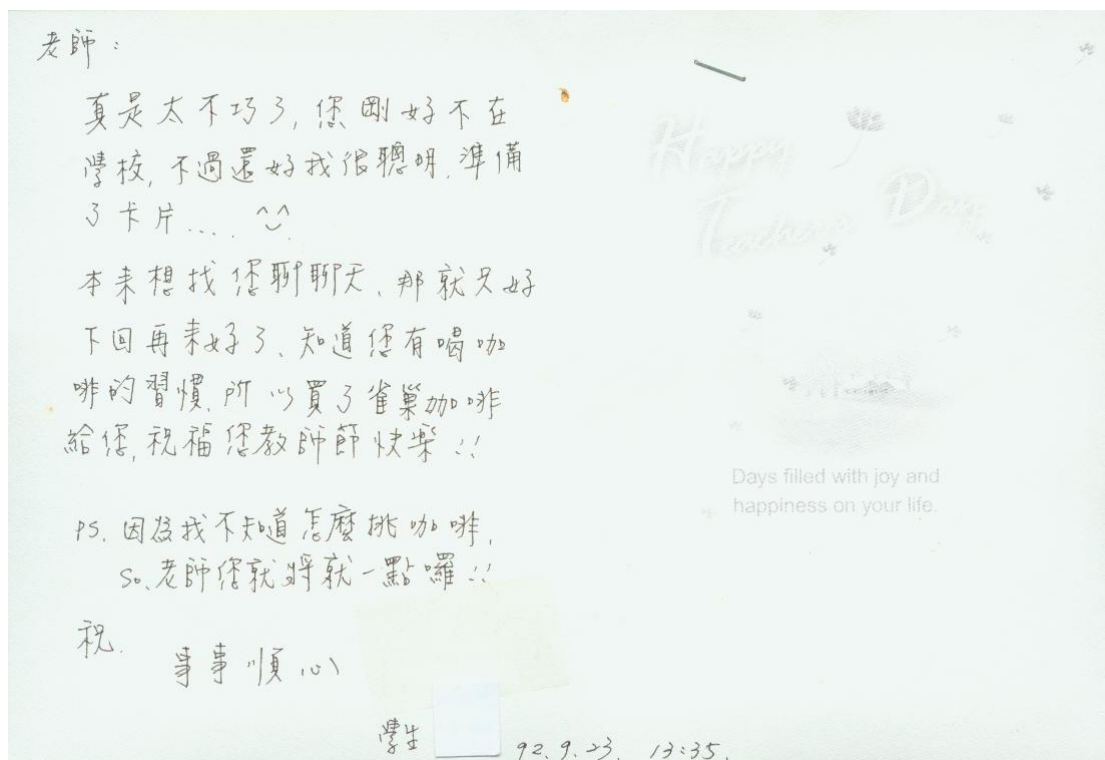 老師：
真是太不巧了，您剛好不在
學校，不過還好我很聰明，準備
了卡片.... ^^
本來想找您聊聊天、那就只好
下回再來好了、知道您有喝咖
啡的習慣，所以買了雀巢咖啡
給您，祝福您教師節快樂!!
PS. 因為我不知道怎麼挑咖啡，
So、老師您就將就一點囉!!
祝.
事事順心
學生
92.9.23. 13:35.
Happy
Teachers Day
Days filled with joy and
happiness on your life.